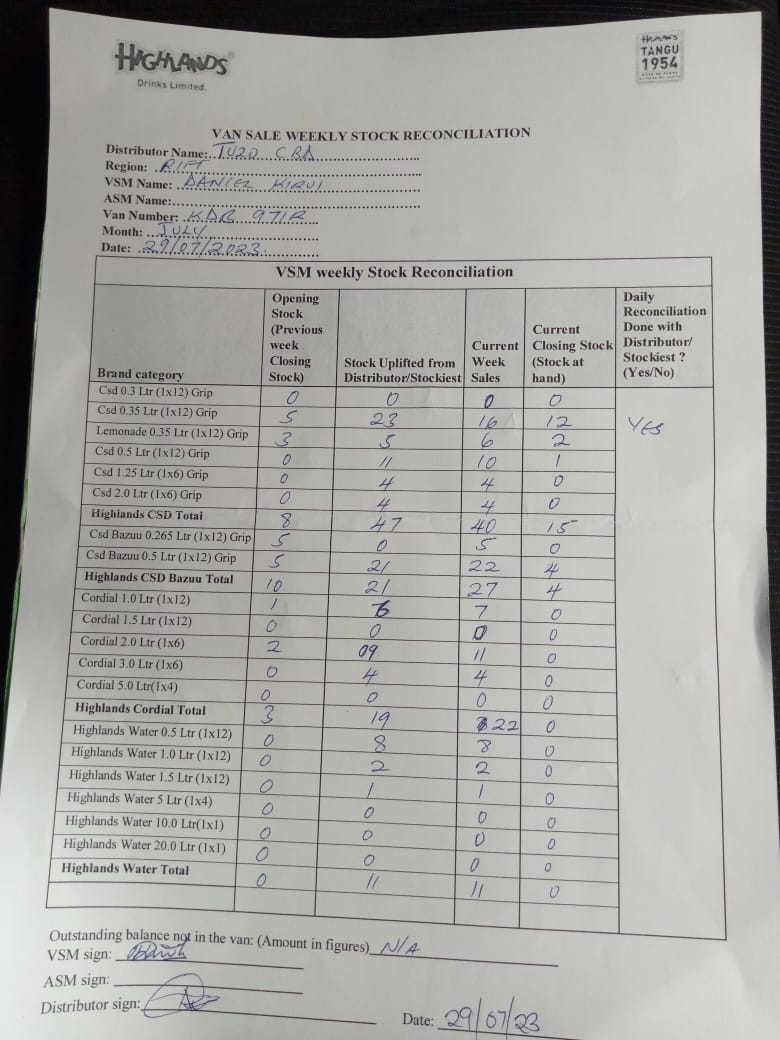 HIGHLANDS
Drinks Limited.
HIGHLANDS
TANGU
1954
VAN SALE WEEKLY STOCK RECONCILIATION
Distributor Name: TUZO CBA
Region: RIFT
VSM Name: DANIEL KIRUI
ASM Name:
Van Number: KDB 971R
Month: JULY
Date: 29/07/2023
VSM weekly Stock Reconciliation
Brand category | Opening Stock (Previous week Closing Stock) | Stock Uplifted from Distributor/Stockiest | Current Week Sales | Current Closing Stock (Stock at hand) | Daily Reconciliation Done with Distributor/ Stockiest ? (Yes/No)
Csd 0.3 Ltr (1x12) Grip 0 0 0 0
Csd 0.35 Ltr (1x12) Grip 5 23 16 12 YES
Lemonade 0.35 Ltr (1x12) Grip 3 5 6 2
Csd 0.5 Ltr (1x12) Grip 0 11 10 1
Csd 1.25 Ltr (1x6) Grip 0 4 4 0
Csd 2.0 Ltr (1x6) Grip 0 4 4 0
Highlands CSD Total 8 47 40 15
Csd Bazuu 0.265 Ltr (1x12) Grip 5 0 5 0
Csd Bazuu 0.5 Ltr (1x12) Grip 5 21 22 4
Highlands CSD Bazuu Total 10 21 27 4
Cordial 1.0 Ltr (1x12) 1 6 7 0
Cordial 1.5 Ltr (1x12) 0 0 0 0
Cordial 2.0 Ltr (1x6) 2 09 11 0
Cordial 3.0 Ltr (1x6) 0 4 4 0
Cordial 5.0 Ltr(1x4) 0 0 0 0
Highlands Cordial Total 3 19 22 0
Highlands Water 0.5 Ltr (1x12) 0 8 8 0
Highlands Water 1.0 Ltr (1x12) 0 2 2 0
Highlands Water 1.5 Ltr (1x12) 0 1 1 0
Highlands Water 5 Ltr (1x4) 0 0 0 0
Highlands Water 10.0 Ltr(1x1) 0 0 0 0
Highlands Water 20.0 Ltr (1x1) 0 0 0 0
Highlands Water Total 0 11 11 0
Outstanding balance not in the van: (Amount in figures) N/A
VSM sign:
ASM sign:
Distributor sign:
Date: 29/07/23